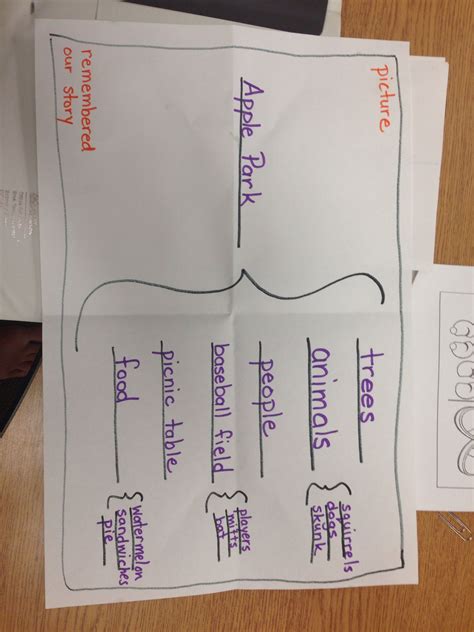 picture
Apple Park
trees
animals
squirrels
dogs
skunk
people
baseball field
players
mitts
bat
picnic table
food
watermelon
sandwiches
pie
remembered
our story